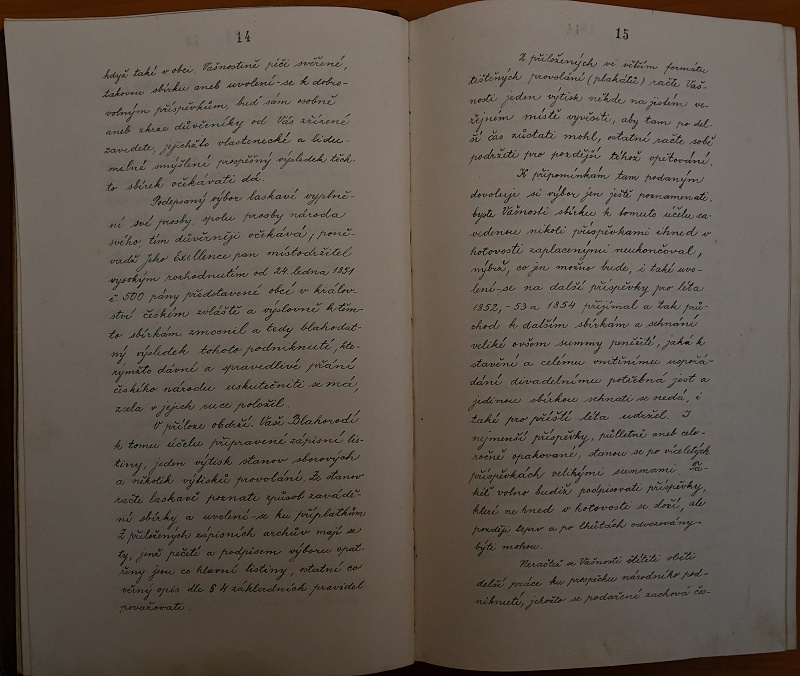 14
když také v obci Vašnostině péči svěřené,
takovou sbírku aneb uvolení-se k dobro-
volným příspěvkům, buď sám osobně
aneb skrze důvěrníky od Vás zřízené
zavedete, jejichžto vlastenecké a lidu-
milné smýšlení prospěšný výsledek těch-
to sbírek očekávati dá.
Podepsaný výbor laskavé vyplně-
ní své prosby spolu prosby národa
svého tím důvěrněji očekává, poně-
vadž Jeho Excellence pan místodržitel
vysokým rozhodnutím od 24. ledna 1851
č 500 pány představené obcí v králov-
ství českém zvláště a výslovně k těm-
to sbírkám zmocnil a tedy blahodat-
ný výsledek tohoto podniknutí, kte-
rýmžto dávné a spravedlivé přání
českého národu uskutečniti se má,
zcela v jejich ruce položil.
V příloze obdrží Vaší Blahorodí
k tomu účelu připravené zápisní lis-
tiny, jeden výtisk stanov sborových
a několik výtisků provolání. Ze stanov
račte laskavě poznati způsob zavádě-
ní sbírky a uvolení-se ku příplatkům
Z přiložených zápisních archův mají se
ty, jenž pečetí a podpisem výboru opat-
řeny jsou co hlavní listiny, ostatní co
věrný opis dle § 4 základních pravidel
považovati.
15
Z přiložených ve větším formátu
tištěných provolání (plakátů) račte Vaš-
nosti jeden výtisk někde na jistém ve-
řejném místě vyvěsiti, aby tam po del-
ší čas zůstati mohl, ostatní račte sobě
podržeti pro pozdější téhož opětování.
K připomínkám tam podaným
dovoluje si výbor jen ještě poznamenati,
byste Vašnosti sbírku k tomuto účelu za-
vedenou nikoti příspěvkami ihned v
hotovosti zaplacenými neukončoval,
nýbrž, co jen možno bude, i také uvo-
lení-se na další příspěvky pro léta
1852, -53 a 1854 přijímal a tak prů-
chod k dalším sbírkám a sehnání
veliké ovšem summy peněžité, jaká k
stavění a celému vnitřnímu uspořá-
dání divadelnímu potřebná jest a
jedinou sbírkou sehnati se nedá, i
také pro příští léta udržel. I
nejmenší příspěvky, půlletně aneb celo-
ročně opakované, stanou se po víceletých
příspěvkách velikými summami. Ta-
kéť volno budiž podpisovati příspěvky,
které ne hned v hotovosti se složí, ale
později teprv a po lhůtách odvozovány
býti mohou.
Neračtež se Vašnosti štítiti oběti
delší práce ku prospěchu národního pod-
niknutí, jehožto se podaření zachová čes-